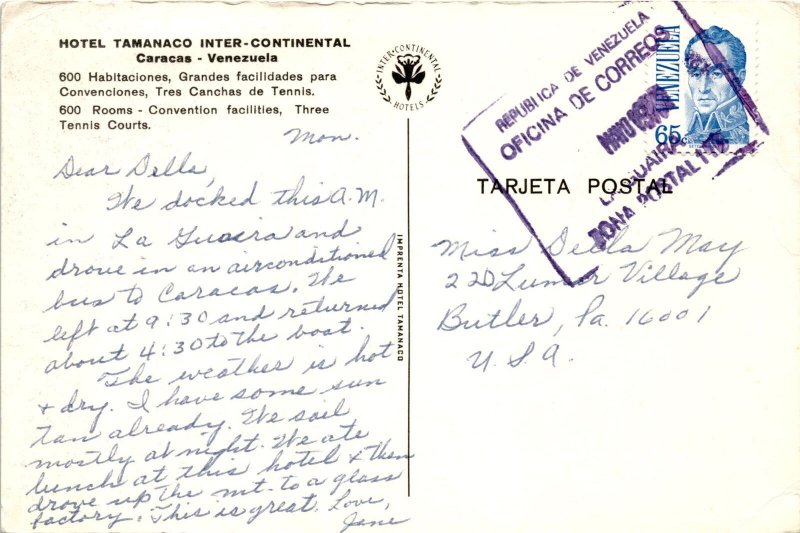 HOTEL TAMANACO INTER-CONTINENTAL
Caracas - Venezuela
600 Habitaciones, Grandes facilidades para
Convenciones, Tres Canchas de Tennis.
600 Rooms - Convention facilities, Three
Tennis Courts.
INTER-CONTINENTAL
HOTELS
Mon.
Dear Della,
We docked this A.M.
in La Guaira and
drove in an airconditioned
bus to Caracas. We
left at 9:30 and returned
about 4:30 to the boat.
The weather is hot
& dry. I have some sun
tan already. We sail
mostly at night. We ate
lunch at this hotel & then
drove up the mt. to a glass
factory. This is great. Love,
Jane
IMPRENTA HOTEL TAMANACO
REPUBLICA DE VENEZUELA
OFICINA DE CORREOS
LA GUAIRA
ZONA POSTAL
VENEZUELA
65c
TARJETA POSTAL
Miss Della May
22D Lumar Village
Butler, Pa. 16001
U.S.A.